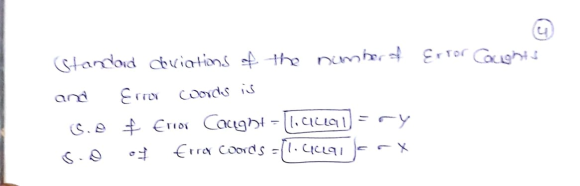 4
Standard deviations of the number of Error Caughts
and Error words is
S.D of Error Caught = 1.4491 = σY
S.D of Error words = 1.4491 = σX